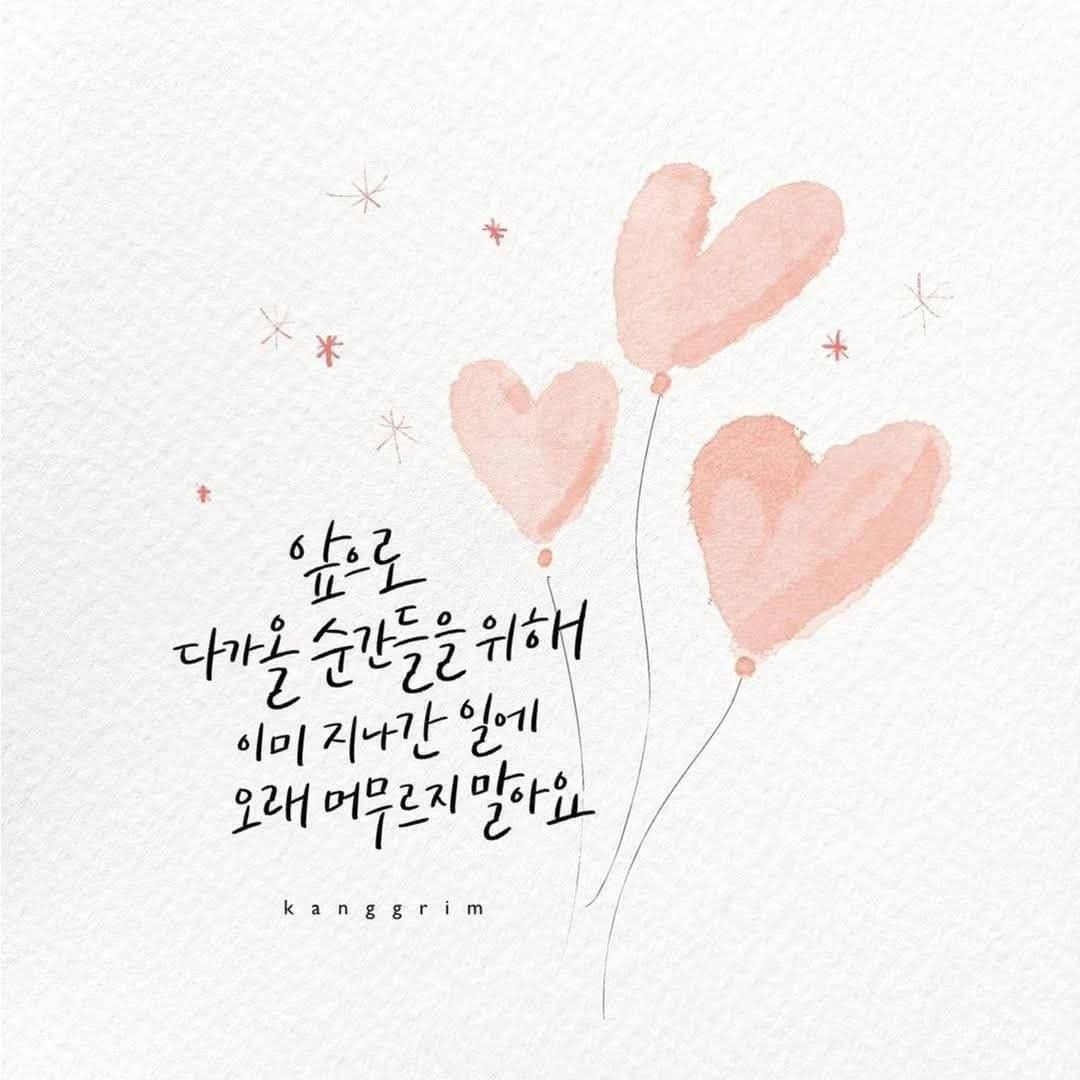 앞으로
다가올 순간들을 위해
이미 지나간 일에
오래 머무르지 말아요
kanggrim